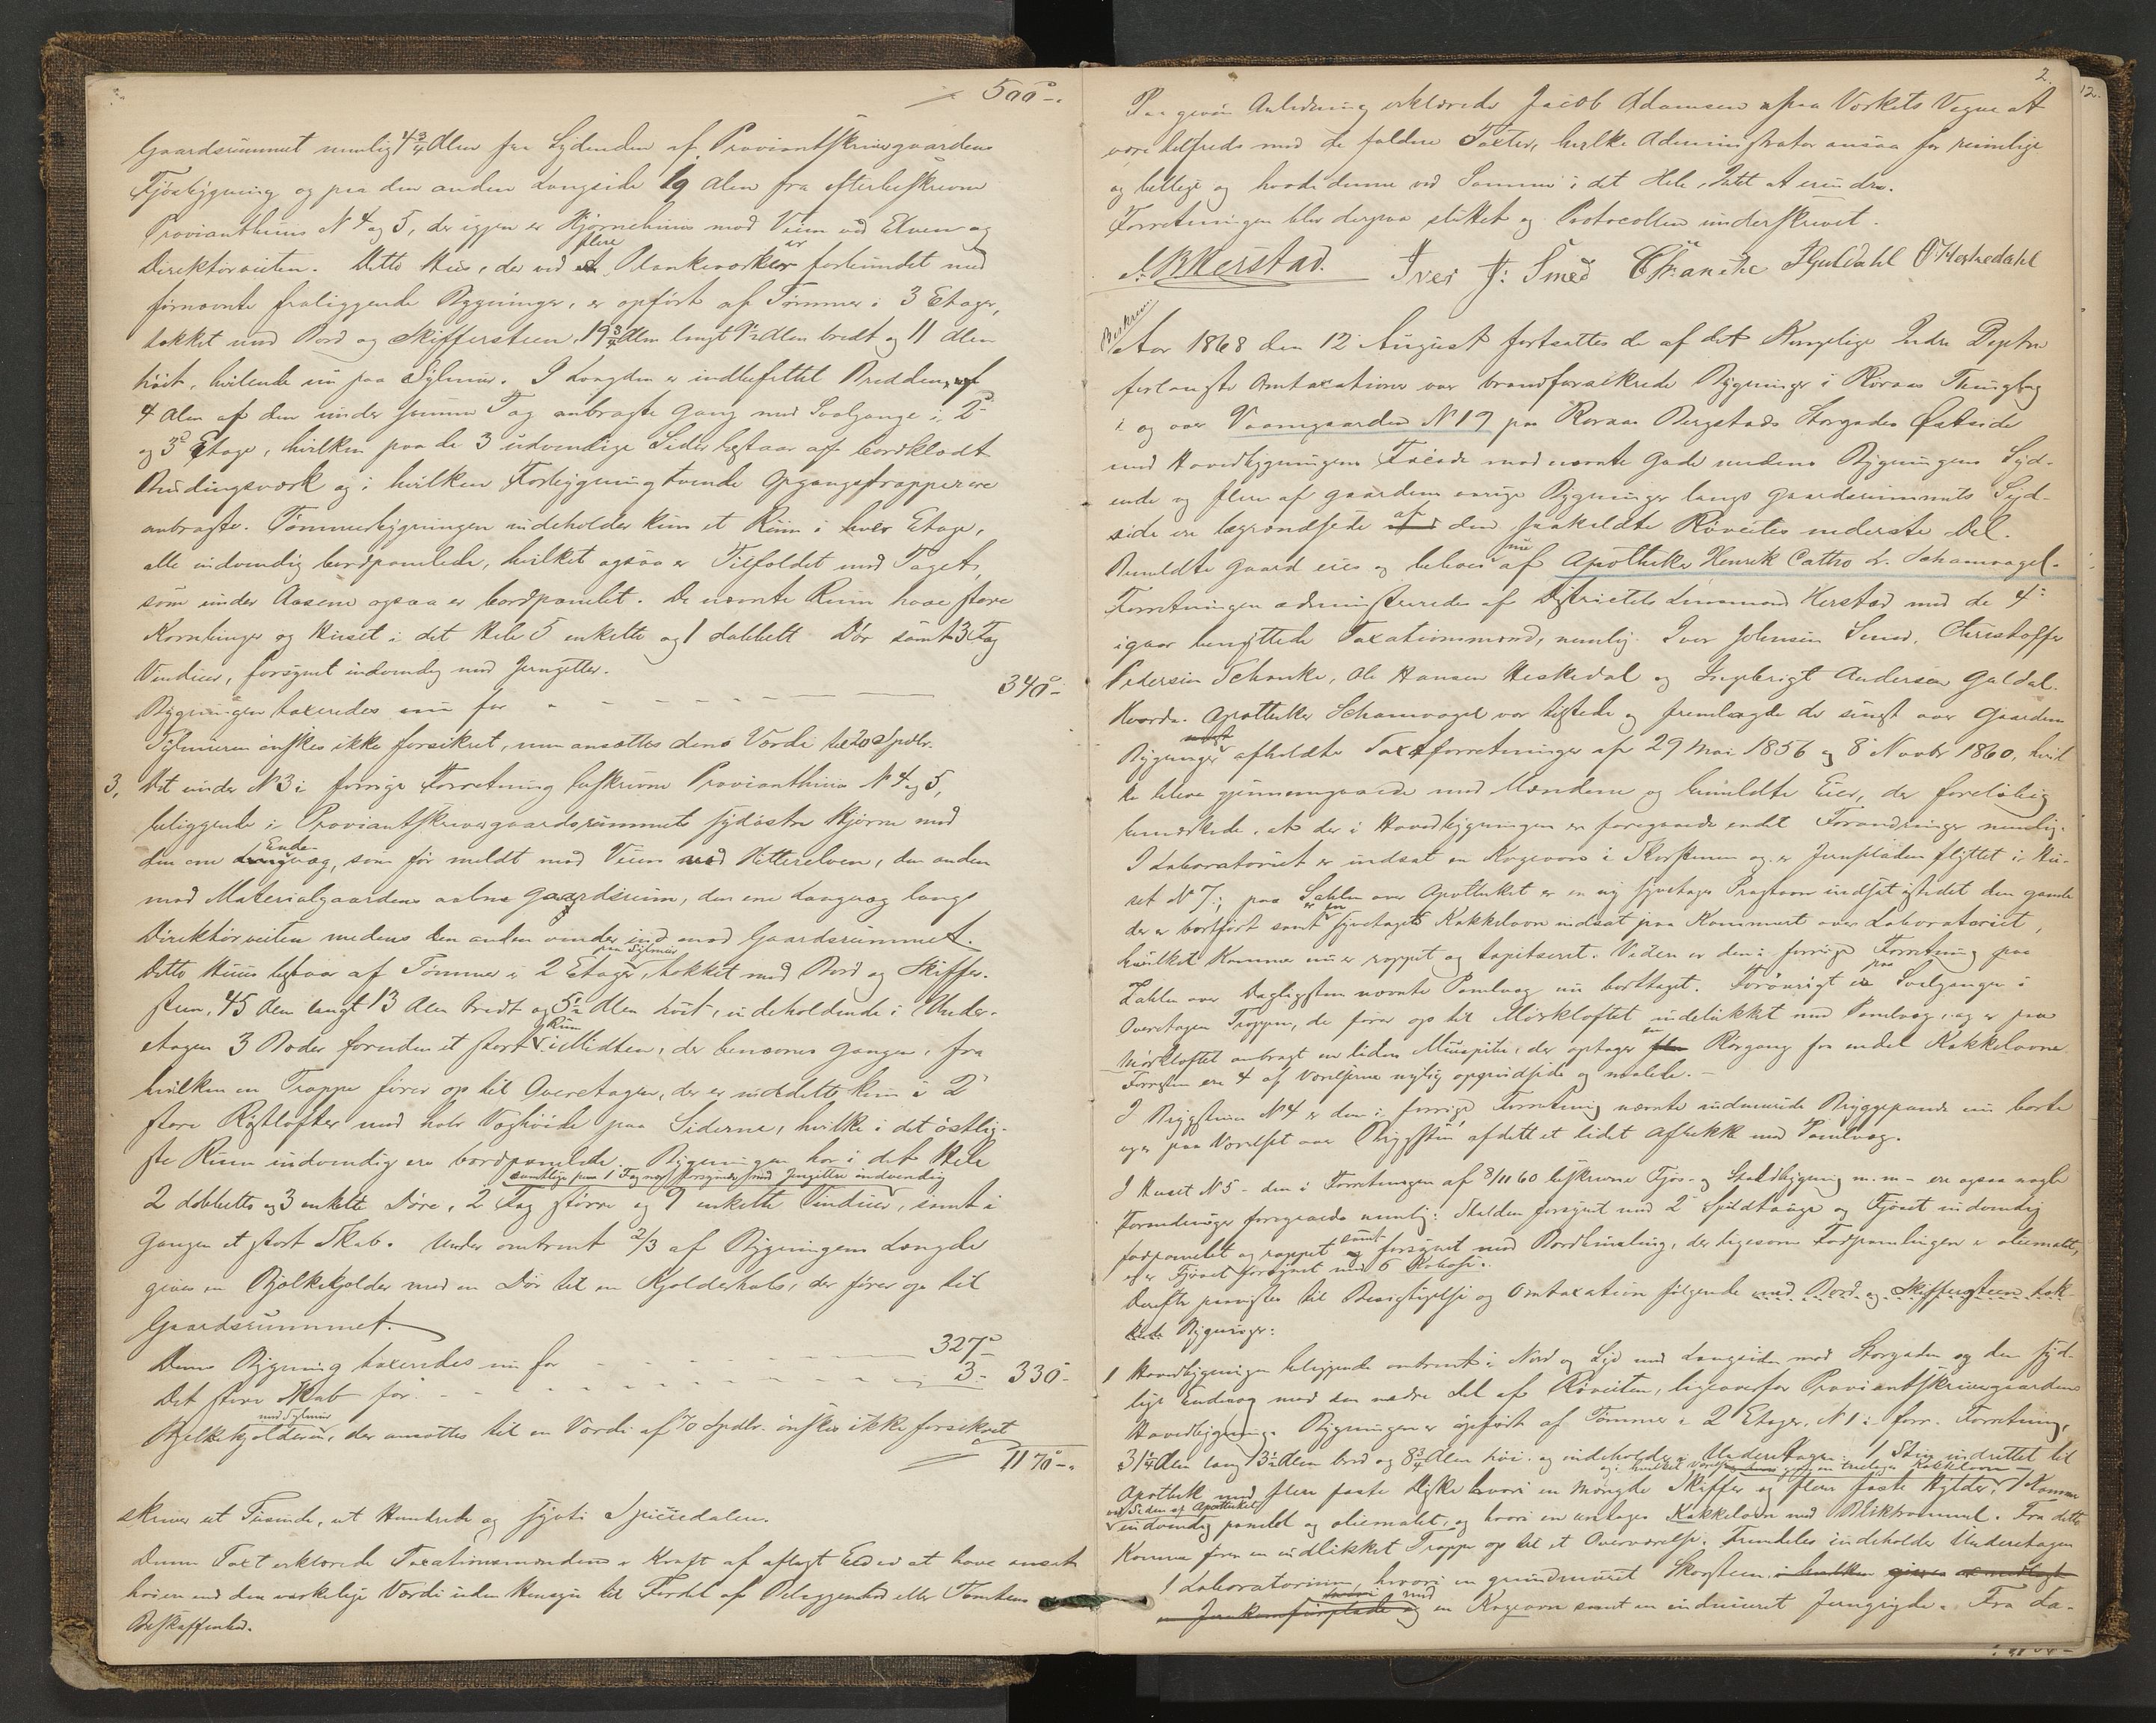 500 -.
Gaardsrummet nemlig 4 3/4 Alen fra Sydenden af Proviantskrivergaardens
Fjøsbygning og paa den anden Langside 19 Alen fra efterbeskrevne
Provianthuus N 4 og 5, der igjen er Hjørnehuus mod Veien ved Elven og
Direktørveiten. Dette Huus, der ved flere Plankeværker er forbundet med
førnævnte fraliggende Bygninger, er opført af Tømmer i 3 Etager,
tækket med Bord og Skiffersteen, 19 3/4 Alen langt 9 1/2 Alen bredt og 11 Alen
høit, hvilende nu paa Sylmuur. I Længden er indbefattet Bredden af
4 Alen af den under samme Tag anbragte Gang med Svalgange i 2den
og 3die Etage, hvilken paa de 3 udvendige Sider bestaar af bordklædt
Bindingsværk og i hvilken Forbygning tvende Opgangstrapper ere
anbragte. Tømmerbygningen indeholder kun et Rum i hver Etage,
alle indvendig bordpanelede, hvilket ogsaa er Tilfældet med Taget,
som under Aasene ogsaa er bordpanelet. De nævnte Rum have store
Kornbinger og Huset i det Hele 5 enkelte og 1 dobbelt Dør samt 3 Fag
Vinduer, forsynet indvendig med Jerngitter.
Bygningen taxeredes nu for - - - - - - 340 -
Sylmuren ønskes ikke forsikret, men ansættes dens Værdi til 20 Spdlr.
3, Det under N 3 i forrige Forretning beskrevne Provianthuus N 4 og 5,
beliggende i Proviantskrivergaardsrummets sydøstre Hjørne med
den ene Endevæg, som før meldt mod Veien ved Hitterelven, den anden
mod Materialgaardens aabne Gaardsrum, den ene Langvæg langs
Direktørveiten medens den anden vender ind mod Gaardsrummet.
Dette Huus bestaar af Tømmer i 2 Etager paa Sylmuur, tækket med Bord og Skiffer-
steen, 45 Alen langt 13 Alen bredt og 5 1/2 Alen høit, indeholdende i Under-
etagen 3 Boder foruden et stort Rum i Midten, der benævnes Gangen, fra
hvilken en Trappe fører op til Overetagen, der er inddelt kun i 2
store Røstlofter med halv Væghøide paa Siderne, hvilke i det østlig-
ste Rum indvendig ere bordpanelede. Bygningen har i det Hele
samtlige paa 1 Fag nær forsynede med Jerngitter indvendig
2 dobbelte og 3 enkelte Døre, 2 Fag større og 9 enkelte Vinduer, samt i
Gangen et stort Skab. Under omtrent 2/3 af Bygningens Længde
gives en Bjelkekjelder med en Dør til en Kjelderhals, der fører op til
Gaardsrummet.
Denne Bygning taxeredes nu for - - - - 327 -
Det store Skab for - - - - - - 3 - 330 -
Bjelkekjelderen med Sylmuur, der ansættes til en Værdi af 70 Spdlr. ønskes ikke forsikret
1170 -.
skriver et Tusinde, et Hundrede og syvti Speciedaler.
Denne Taxt erklærede Taxationsmændene i Kraft af aflagt Eed ei at have ansat
høiere end den virkelige Værdi uden Hensyn til Fordel af Beliggenhed eller Tomtens
Beskaffenhed.
2.
12.
Paa given Anledning erklærede Jacob Adamsen paa Værkets Vegne at
være tilfreds med de faldne Taxter, hvilke Administrator ansaa for rimelige
og billige og havde denne ved Samme i det Hele Intet at erindre.
Forretningen blev derpaa sluttet og Protocollen underskrevet.
Herstad. Iver J: Smed Ch: anche IGuldahl OHeskedahl
Beskreven
Aar 1868 den 12 August fortsattes de af det Kongelige Indre Deptm
forlangte Omtaxationer over brandforsikrede Bygninger i Røraas Thinglag
i og over Vaamgaarden N 19 paa Røraas Bergstads Storgades Østside
med Hovedbygningens Façade mod nævnte Gade medens Bygningens Syd-
ende og flere af Gaardens øvrige Bygninger langs Gaardsrummets Syd-
side ere begrændsede af den saakaldte Røveites nederste Del.
Anmeldte Gaard eies og beboes nu af Apotheker Henrik Catho L. Schamvogel.
Forretningen administreredes af Districtets Lensmand Herstad med de 4
igaar benyttede Taxationsmænd, nemlig Iver Johnsen Smed, Christoffer
Pedersen Schanke, Ole Hansen Heskedal og Ingebrigt Andersen Guldal.
Hvorda. Apotheker Schamvogel var tilstede og fremlagde de sidst over Gaardens
Bygninger afholdte Taxtforretninger af 29 Mai 1856 og 8 Novbr 1860, hvil
ke bleve gjennemgaaede med Mændene og anmeldte Eier, der foreløbig
bemærkede, at der i Hovedbygningen er foregaaede endel Forandringer nemlig:
I Laboratoriet er indsat en Kogeovn i Skorstenen og er Jernpladen flyttet i Hu-
set N 7; paa Sahlen over Apotheket er en ny fyretages Pragtovn indsat istedet den gamle
der er bortført samt er en fyretages Kakkelovn indsat paa Kammeret over Laboratoriet,
hvilket Kammer nu er rappet og tapitseret. Videre er den i forrige Forretning paa
Zahlen over Dagligstuen nævnte Panelvæg nu borttaget. Forøvrigt er paa Svalgangen i
Overetagen Trappen, de fører op til Mørkloftet indelukket med Panelvæg, og er paa
Mørkloftet anbragt en liden Muurpibe, der optager en Rørgang fra endel Kakkelovne
Forresten ere 4 af Værelserne nylig oppudsede og malede. -
I Bryggstuen N 4 er den i forrige Forretning nævnte indmurede Bryggepande nu borte
og er paa Værelset over Bryggstuen afdelt et lidet Aflukke med Panelvæg.
I Huset N 5 - den i Forretningen af 8/11 60 beskrevne Fjøs- og Staldbygning m. m - ere ogsaa nogle
Forandringer foregaaede nemlig: Stalden forsynet med 2 Spildtauge og Fjøset indvendig
fodpanelet og rappet samt forsynet med Bordhimling, der ligesom Fodpanelingen er oliemalt,
og er Fjøset forsynet med 6 Kobaase.
Derefter paavistes til Besigtigelse og Omtaxation følgende med Bord og Skiffersteen tæk-
kede Bygninger:
1 Hovedbygningen beliggende omtrent i Nord og Syd med Langsiden mod Storgaden og den syd-
lige Endevæg mod den nedre Del af Røveiten, ligeoverfor Proviantskrivergaardens
Hovedbygning. Bygningen er opført af Tømmer i 2 Etager, N 1 i forr. Forretning,
31 1/4 Alen lang 13 1/2 Alen bred og 8 3/4 Alen høi, og indeholder i Underetagen: 1 Stue indrettet til
og i hvilket Værelse en treetages Kakkelovn
Apothek med flere faste Diske hvori en Mængde Skuffer og flere faste Hylder, 1 Kammer
ved Siden af Apotheket
indvendig panelet og oliemalet, og hvori en treetages Kakkelovn med Bliktrommel. Fra dette
Kammer fører en indlukket Trappe op til et Overværelse. Fremdeles indeholder Underetagen
1 Laboratorium, hvori en grundmuret Skorsteen i hvilken gives
en Jernkomfurplade og med en Kogeovn samt en indmuret Jerngryde. Fra La-